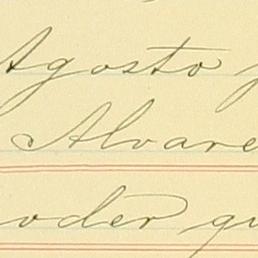 Agosto y
Alvare
oder qu